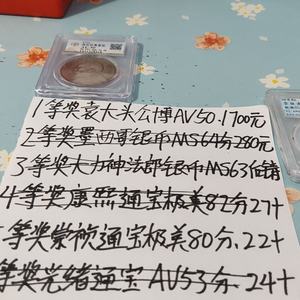 1等奖袁大头公博AV50.1700元
2等奖墨西哥银币MS64分280元
3等奖大力神法郎银币MS63
4等奖康熙通宝极美82分27+
等奖崇祯通宝极美80分.22+
等奖光绪通宝AV53分.24+